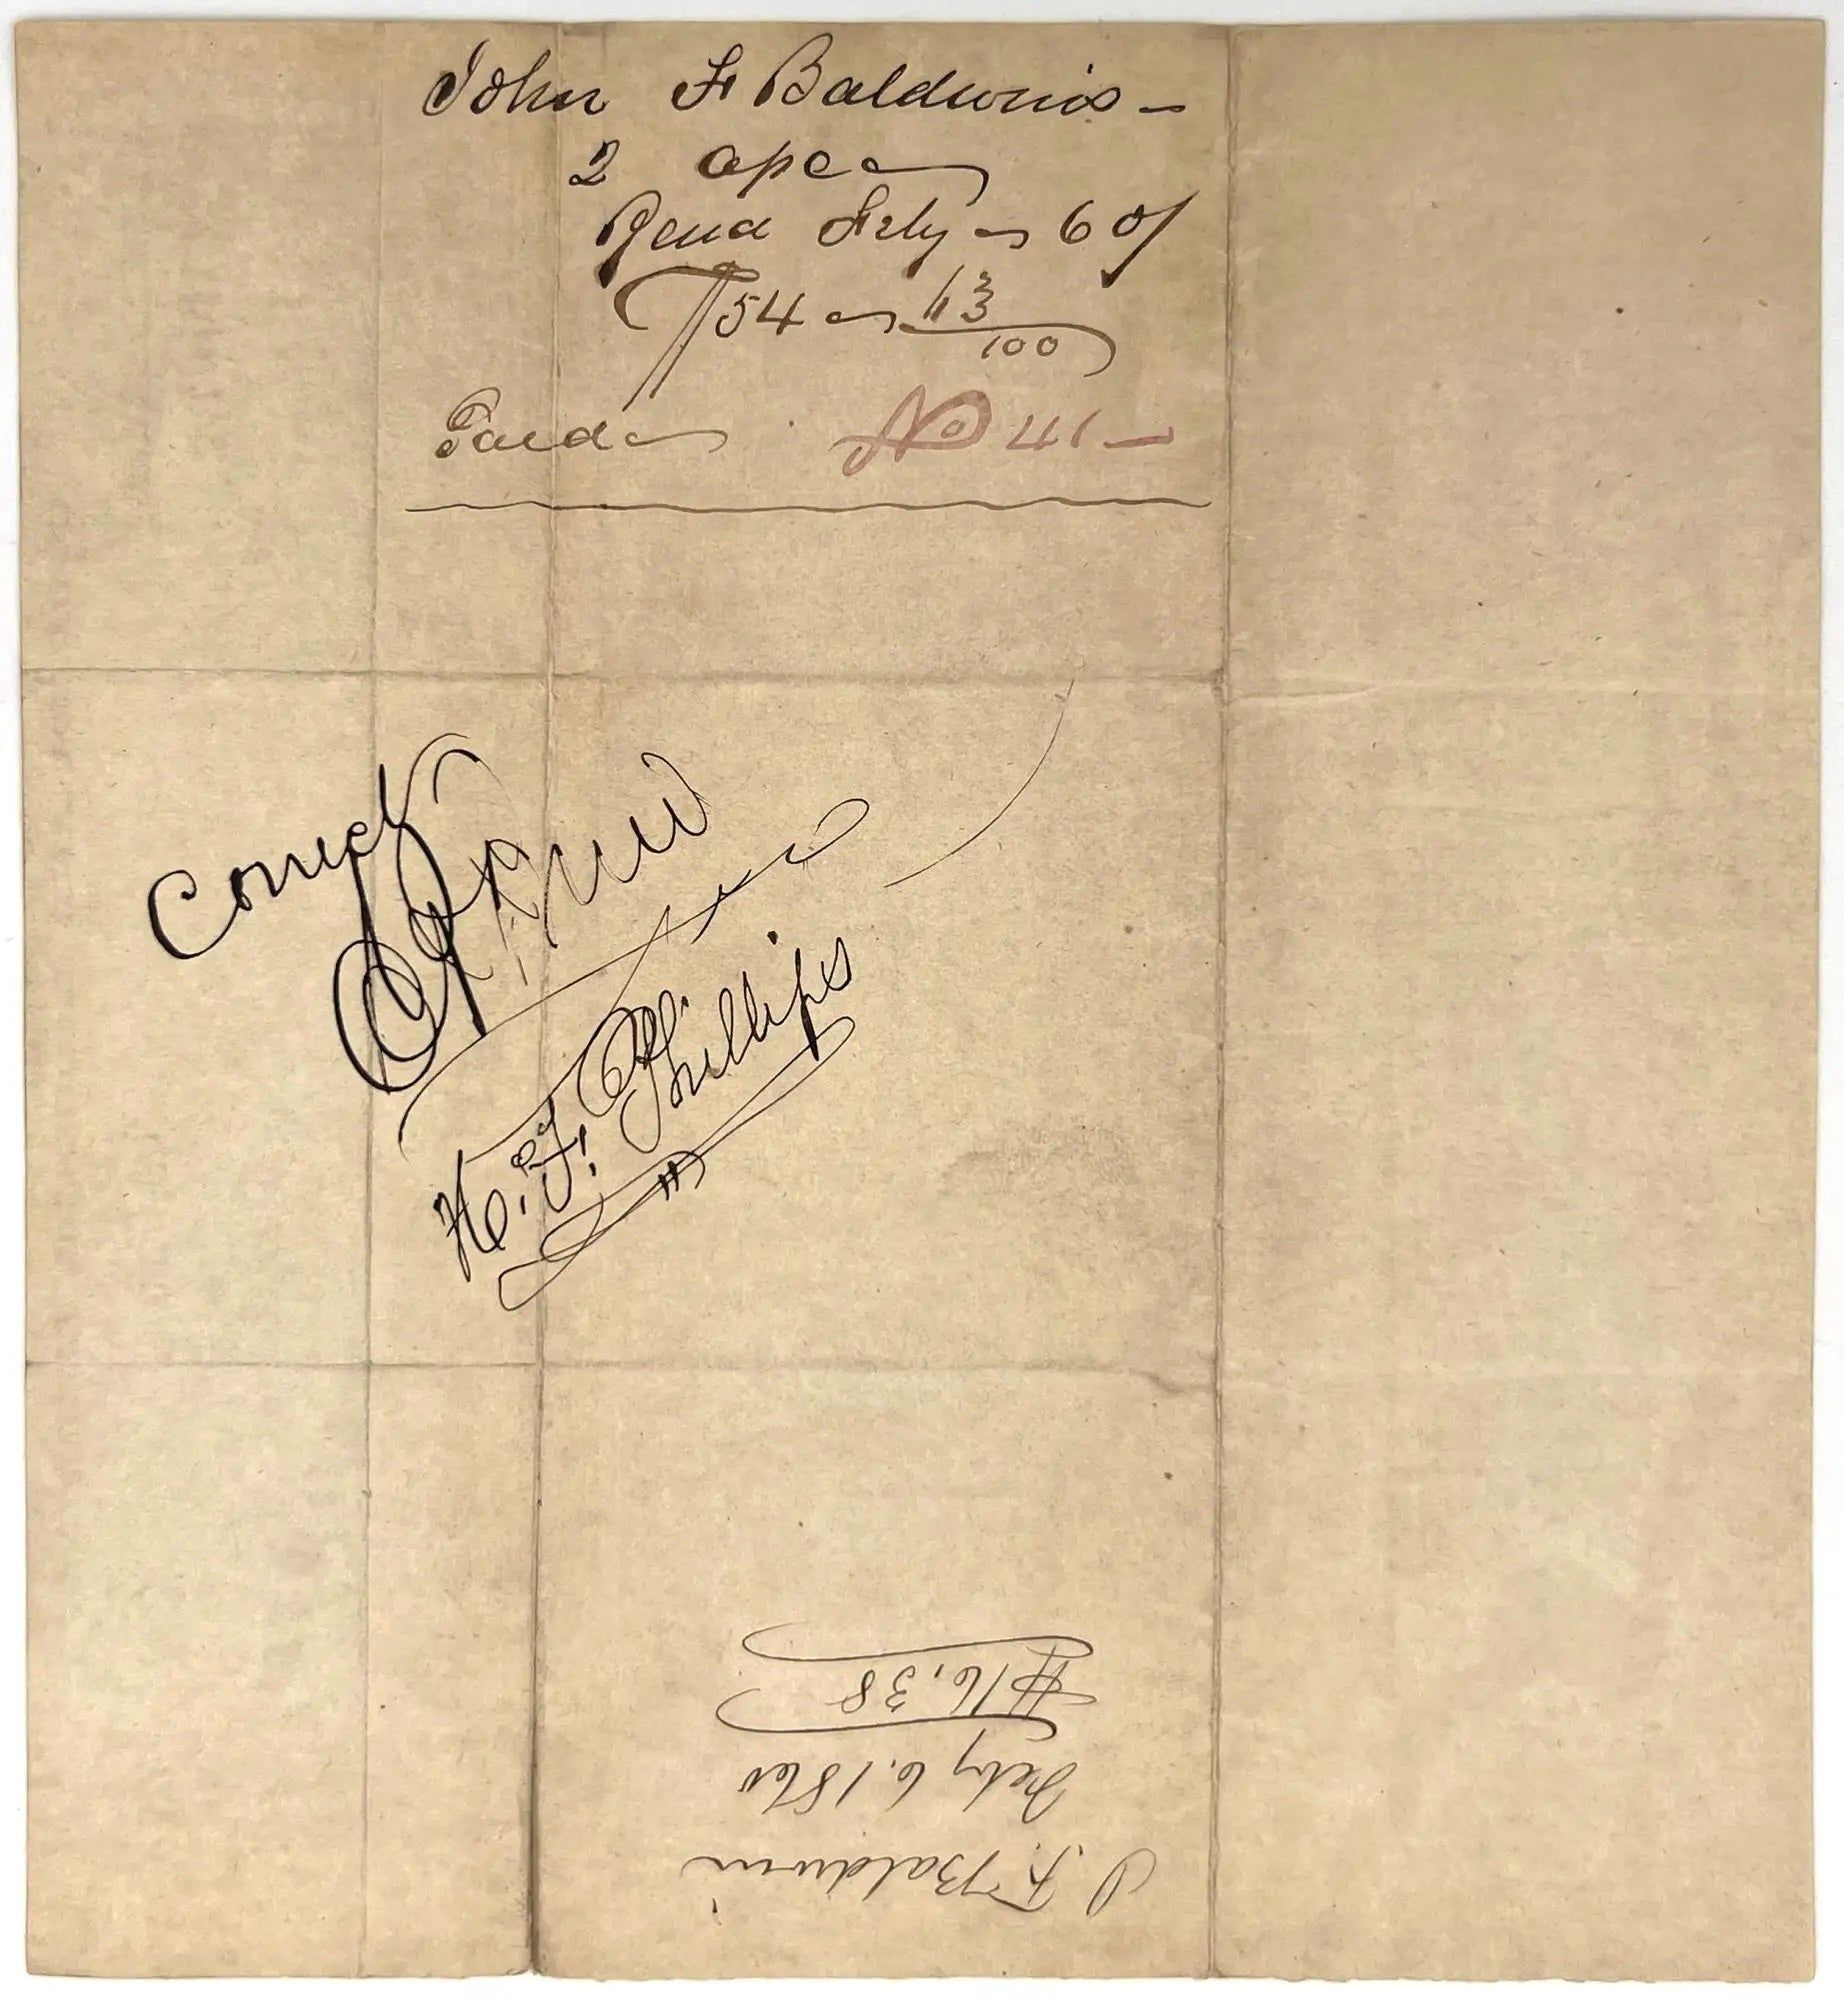 John F Baldwins –
2 apca
Rena Feby 6 of
$54 13/100
Paid No 41 –
Correct
H. F. Phillips
J. F. Baldwin
Feby 6. 1860
$16,38